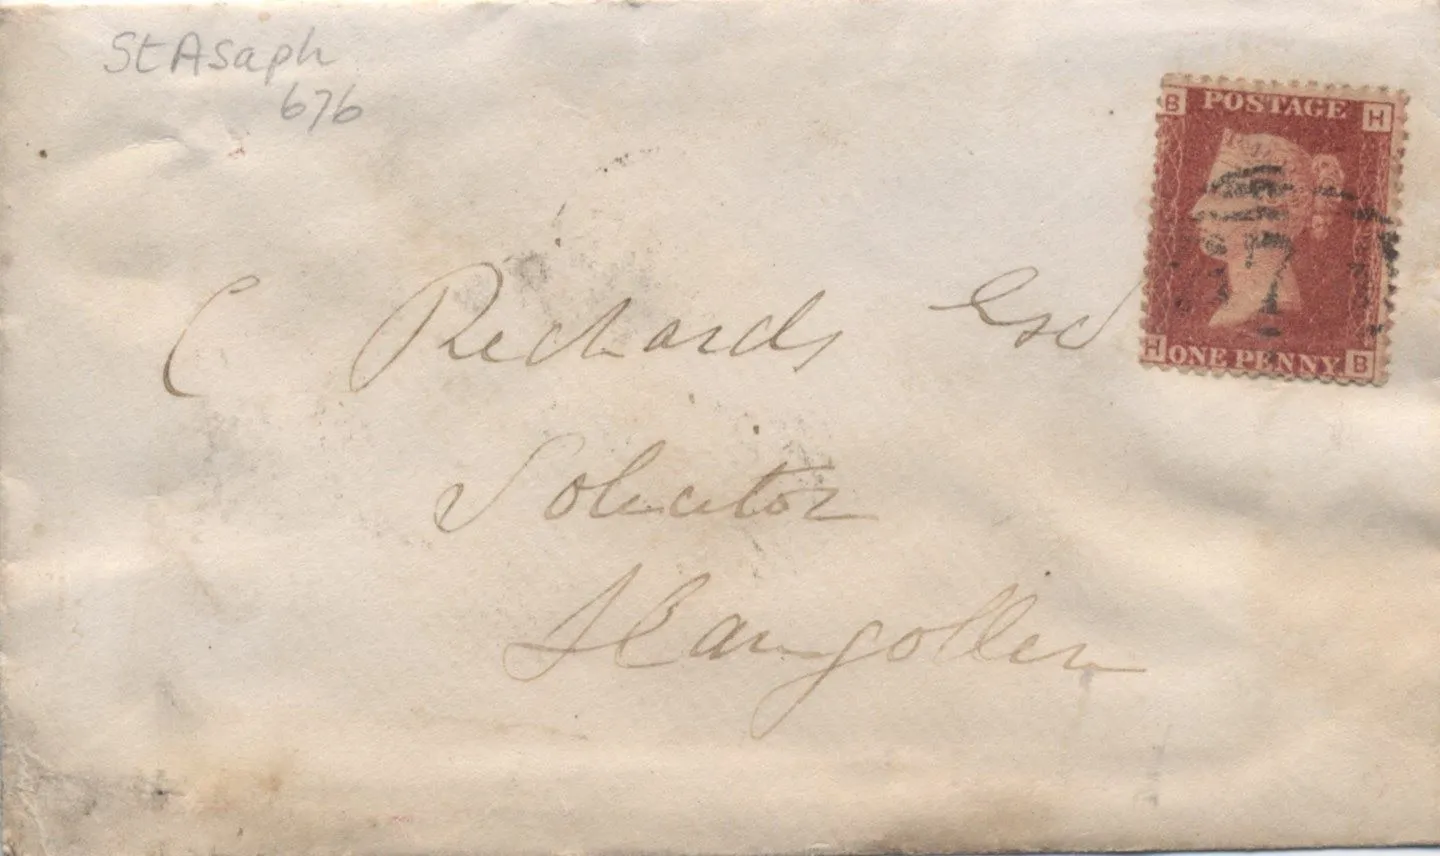 St Asaph
676
B POSTAGE H
H ONE PENNY B
C Richards Esq
Solicitor
Llangollen